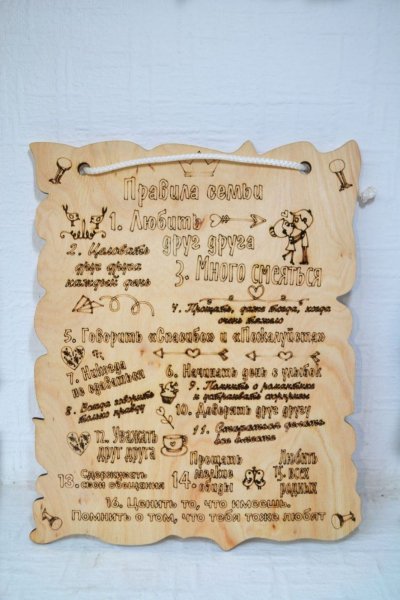 Правила семьи
1. Любить
друг друга
2. Целовать
друг друга
каждый день
3. Много смеяться
4. Прощать, даже тогда, когда
очень тяжело
5. Говорить «Спасибо» и «Пожалуйста»
6. Начинать день с улыбок
7. Никогда
не сдаваться
8. Всегда говорить
только правду
9. Помнить о романтике
и устраивать сюрпризы
10. Доверять друг другу
11. Стараться делать
все вместе
12. Уважать
друг друга
13. Сдерживать
свои обещания
14. Прощать
мелкие
обиды
15. Любить
всех
родных
16. Ценить то, что имеешь.
Помнить о том, что тебя тоже любят